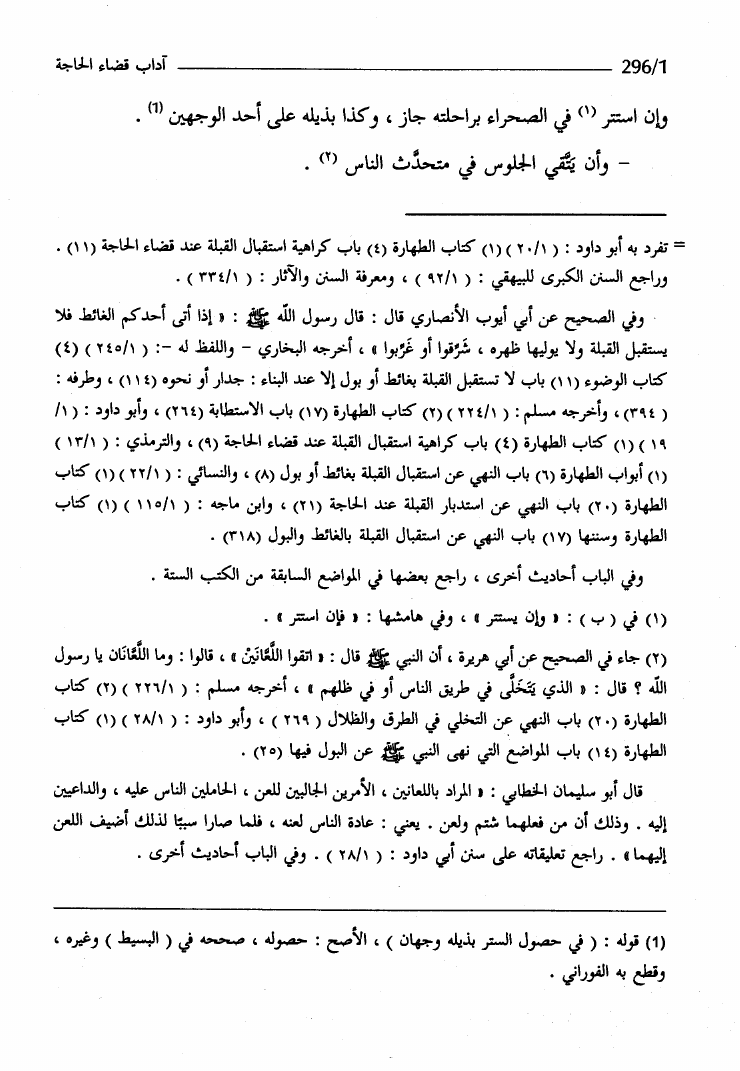 296/1 آداب قضاء الحاجة
وإن استتر (١) في الصحراء براحلته جاز ، وكذا بذيله على أحد الوجهين (1) .
– وأن يَتَّقي الجلوس في متحدَّث الناس (٢) .
= تفرد به أبو داود : ( ٢٠/١ ) (١) كتاب الطهارة (٤) باب كراهية استقبال القبلة عند قضاء الحاجة (١١) .
وراجع السنن الكبرى للبيهقي : ( ٩٢/١ ) ، ومعرفة السنن والآثار : ( ٣٣٤/١ ) .
وفي الصحيح عن أبي أيوب الأنصاري قال : قال رسول الله ﷺ : « إذا أتى أحدكم الغائط فلا
يستقبل القبلة ولا يوليها ظهره ، شَرِّقوا أو غَرِّبوا » ، أخرجه البخاري – واللفظ له –: ( ٢٤٥/١ ) (٤)
كتاب الوضوء (١١) باب لا تستقبل القبلة بغائط أو بول إلا عند البناء : جدار أو نحوه (١٤٤) ، وطرفه :
( ٣٩٤) ، وأخرجه مسلم : ( ٢٢٤/١ ) (٢) كتاب الطهارة (١٧) باب الاستطابة (٢٦٤) ، وأبو داود : ( ١/
١٩ ) (١) كتاب الطهارة (٤) باب كراهية استقبال القبلة عند قضاء الحاجة (٩) ، والترمذي : ( ١٣/١ )
(١) أبواب الطهارة (٦) باب النهي عن استقبال القبلة بغائط أو بول (٨) ، والنسائي : ( ٢٢/١ ) (١) كتاب
الطهارة (٢٠) باب النهي عن استدبار القبلة عند الحاجة (٢١) ، وابن ماجه : ( ١١٥/١ ) (١) كتاب
الطهارة وسننها (١٧) باب النهي عن استقبال القبلة بالغائط والبول (٣١٨) .
وفي الباب أحاديث أخرى ، راجع بعضها في المواضع السابقة من الكتب الستة .
(١) في ( ب ) : « وإن يستتر » ، وفي هامشها : « فإن استتر » .
(٢) جاء في الصحيح عن أبي هريرة ، أن النبي ﷺ قال : « اتقوا اللَّعَّانَيْنْ » ، قالوا : وما اللَّعَّانَان يا رسول
الله ؟ قال : « الذي يَتَخَلَّى في طريق الناس أو في ظلهم » ، أخرجه مسلم : ( ٢٢٦/١ ) (٢) كتاب
الطهارة (٢٠) باب النهي عن التخلي في الطرق والظلال ( ٢٦٩ ) ، وأبو داود : ( ٢٨/١ ) (١) كتاب
الطهارة (١٤) باب المواضع التي نهى النبي ﷺ عن البول فيها (٢٥) .
قال أبو سليمان الخطابي : « المراد باللعانين ، الأمرين الجالبين للعن ، الحاملين الناس عليه ، والداعيين
إليه . وذلك أن من فعلهما شتم ولعن . يعني : عادة الناس لعنه ، فلما صارا سببًا لذلك أضيف اللعن
إليهما» . راجع تعليقاته على سنن أبي داود : ( ٢٨/١ ) . وفي الباب أحاديث أخرى .
(1) قوله : ( في حصول الستر بذيله وجهان ) ، الأصح : حصوله ، صححه في ( البسيط ) وغيره ،
وقطع به الفوراني .